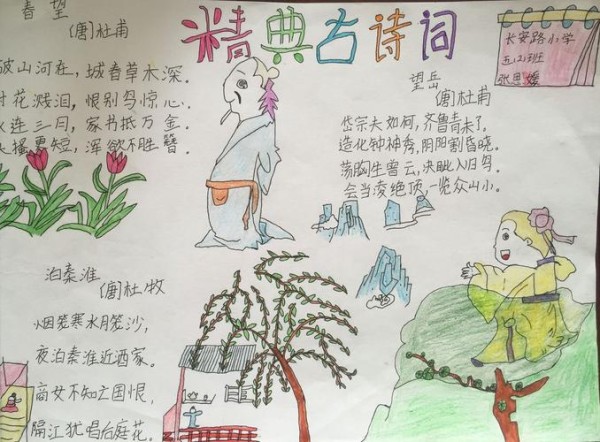 春望
(唐)杜甫
破山河在，城春草木深。
时花溅泪，恨别鸟惊心。
火连三月，家书抵万金。
搔更短，浑欲不胜簪。
精典古诗词
长安路小学
五(2)班
张思媛
望岳
(唐)杜甫
岱宗夫如何，齐鲁青未了。
造化钟神秀，阴阳割昏晓。
荡胸生曾云，决眦入归鸟。
会当凌绝顶，一览众山小。
泊秦淮
(唐)杜牧
烟笼寒水月笼沙，
夜泊秦淮近酒家。
商女不知亡国恨，
隔江犹唱后庭花。